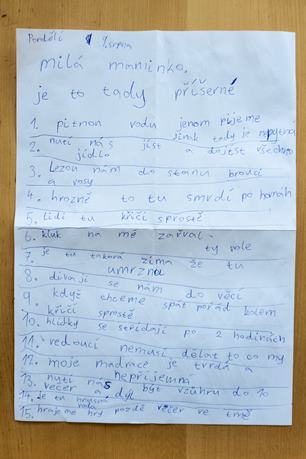 Pondělí 1. srpna
milá maminko,
je to tady příšerné
1. pitnou vodu jenom pijeme
jinak tady je nepitná
2. nutí nás jíst a dojíst všechno
jídlo
3. Lezou nám do stanu brouci
a vosy
4. hrozně to tu smrdí po
5. lidi tu křičí sprostě
6. kluk na mě zařval
ty vole
7. je tu taková zima že tu
umrznou
8. dívají se nám do věcí
9. když chceme spát pořád kolem
křičí sprostě
10. hlídky se střídají po 2 hodinách
11. vedoucí nemusí dělat to co my
12. moje madrace je tvrdá a
nepříjemná
13. nutí nás být vzhůru do 10
večer a dýl
14. je tu hnusná
voda
15. hrajeme hry pozdě večer ve tmě